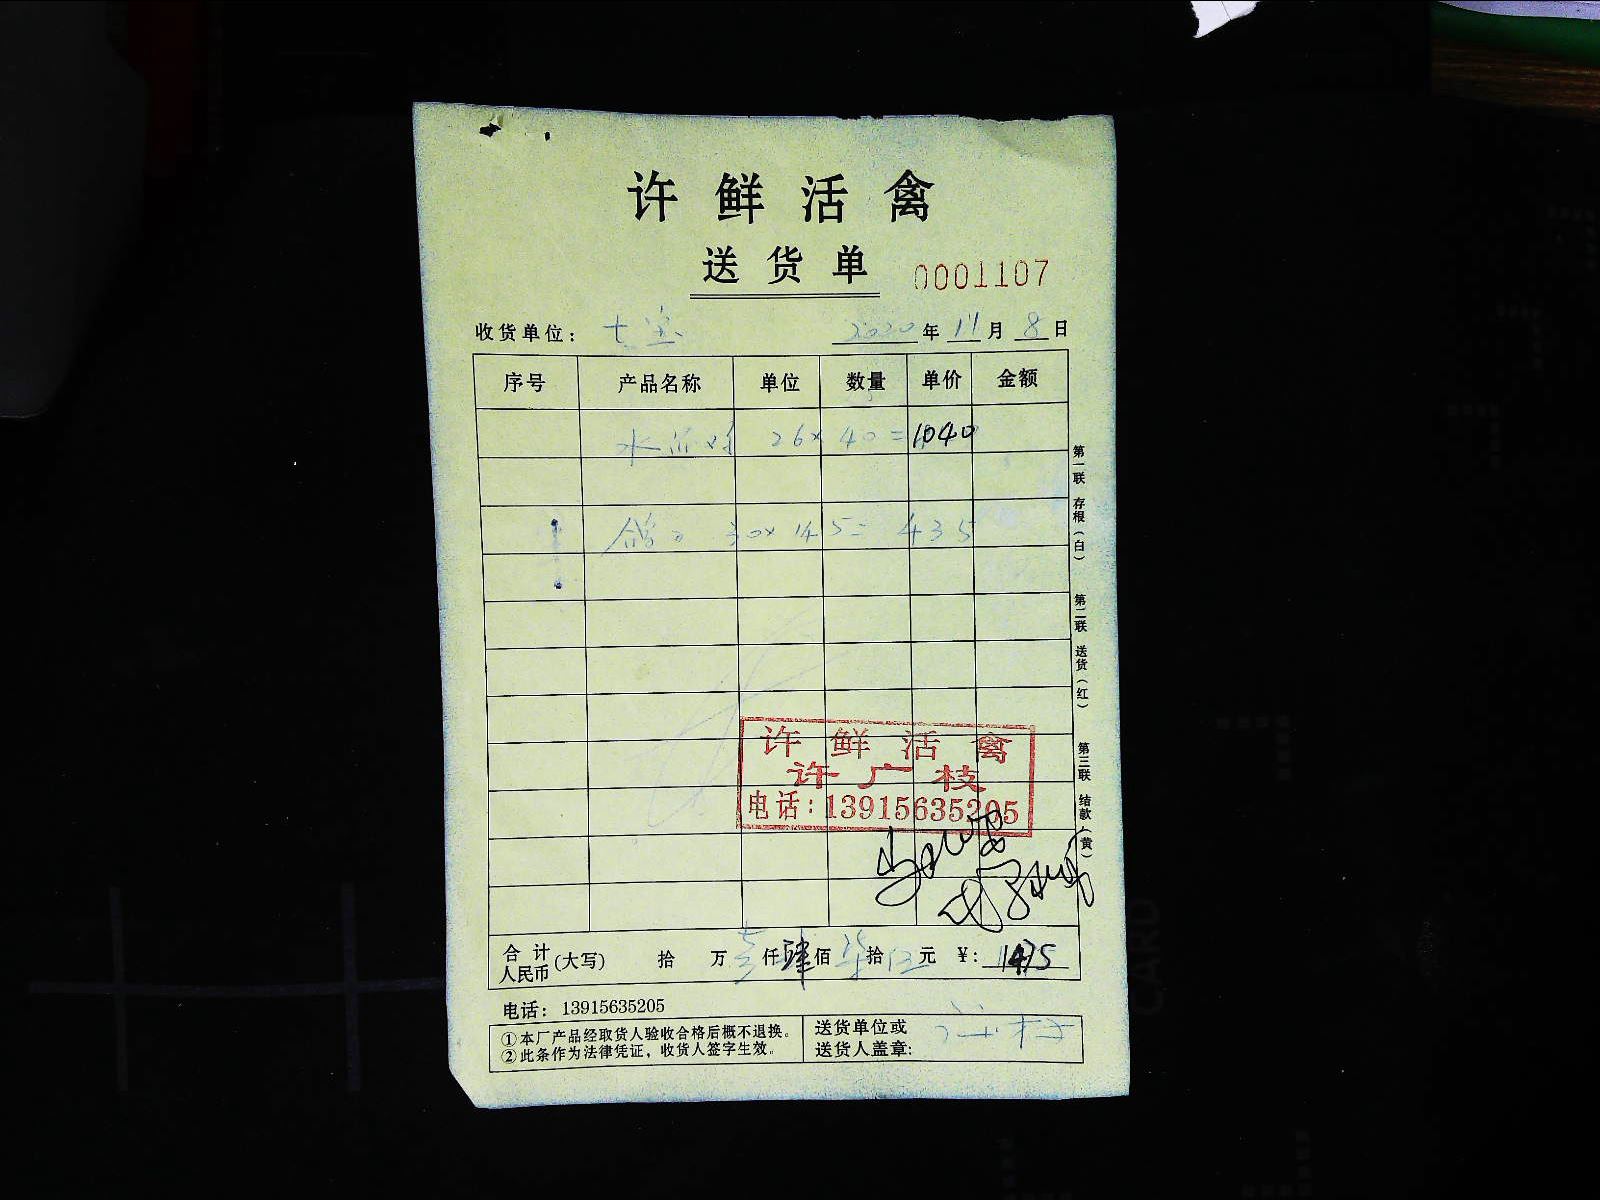 许鲜活禽
送货单 0001107
收货单位： 七宝 2020年11月8日
序号 产品名称 单位 数量 单价 金额
水 26×40=1040
鸽 30×14.5=435
许鲜活禽
许广枝
电话：13915635205
合计人民币(大写) 拾 万 壹仟肆佰柒拾伍元 ¥：1475
电话： 13915635205
①本厂产品经取货人验收合格后概不退换。
②此条作为法律凭证，收货人签字生效。
送货单位或
送货人盖章：
第一联 存根（白） 第二联 送货（红） 第三联 结款（黄）